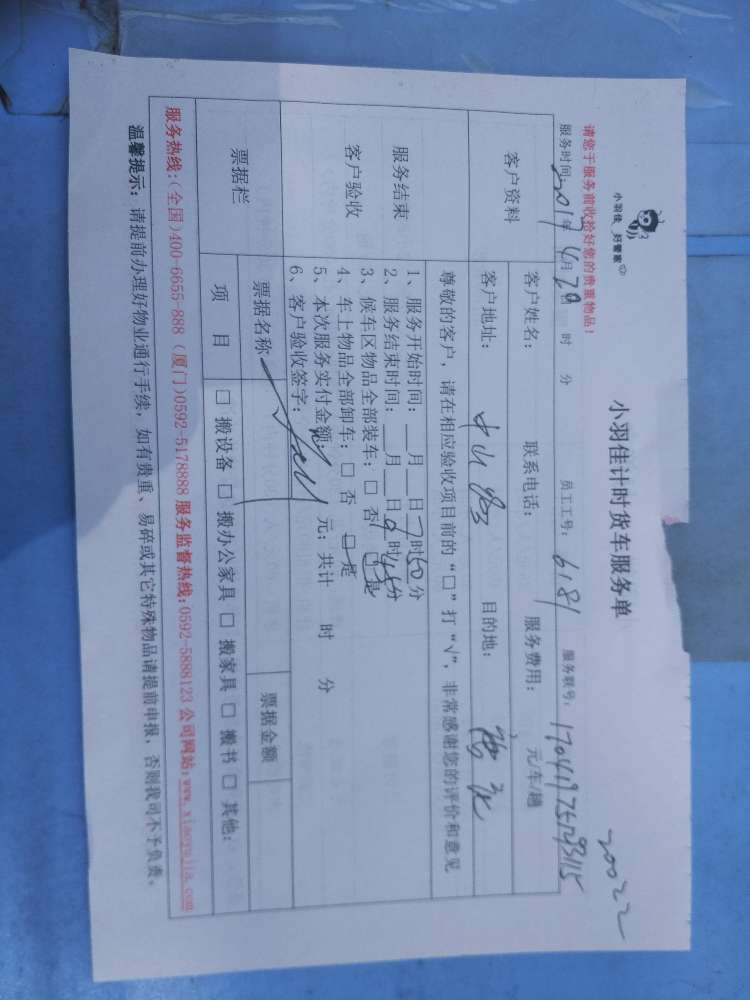 小羽佳 好管家
20022
小羽佳计时货车服务单
请您于服务前收拾好您的贵重物品!
服务时间: 2017年 4月 20 时 分 员工工号: 6181 服务联号:
客户资料 客户姓名: 联系电话: 服务费用: 元/车/趟
客户地址: 中山 目的地:
尊敬的客户,请在相应验收项目前的“□”打“√”,非常感谢您的评价和意见
服务结束
客户验收
1、服务开始时间: 月 日 7时50分
2、服务结束时间: 月 日 9时45分
3、候车区物品全部装车:□ 否 □是
4、车上物品全部卸车:□ 否 □是
5、本次服务实付金额: 元; 共计 时 分
6、客户验收签字:
票据栏 票据名称 票据金额
项 目 □ 搬设备 □ 搬办公家具 □ 搬家具 □ 搬书 □ 其他:
服务热线:(全国)400-6655-888 (厦门)0592-5178888 服务监督热线:0592-5888123 公司网站:www.xiaoyujia.com
温馨提示: 请提前办理好物业通行手续,如有贵重、易碎或其它特殊物品请提前申报,否则我司不予负责。